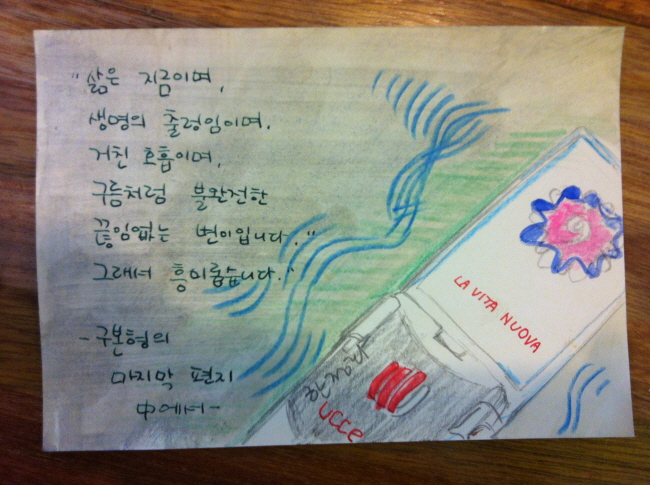 "삶은 지금이며,
생명의 출렁임이며,
거친 호흡이며,
구름처럼 불완전한
끝임없는 변이입니다."
그래서 흥미롭습니다."
- 구본형의
마지막 편지
中에서-
LA VITA NUOVA
UCCe